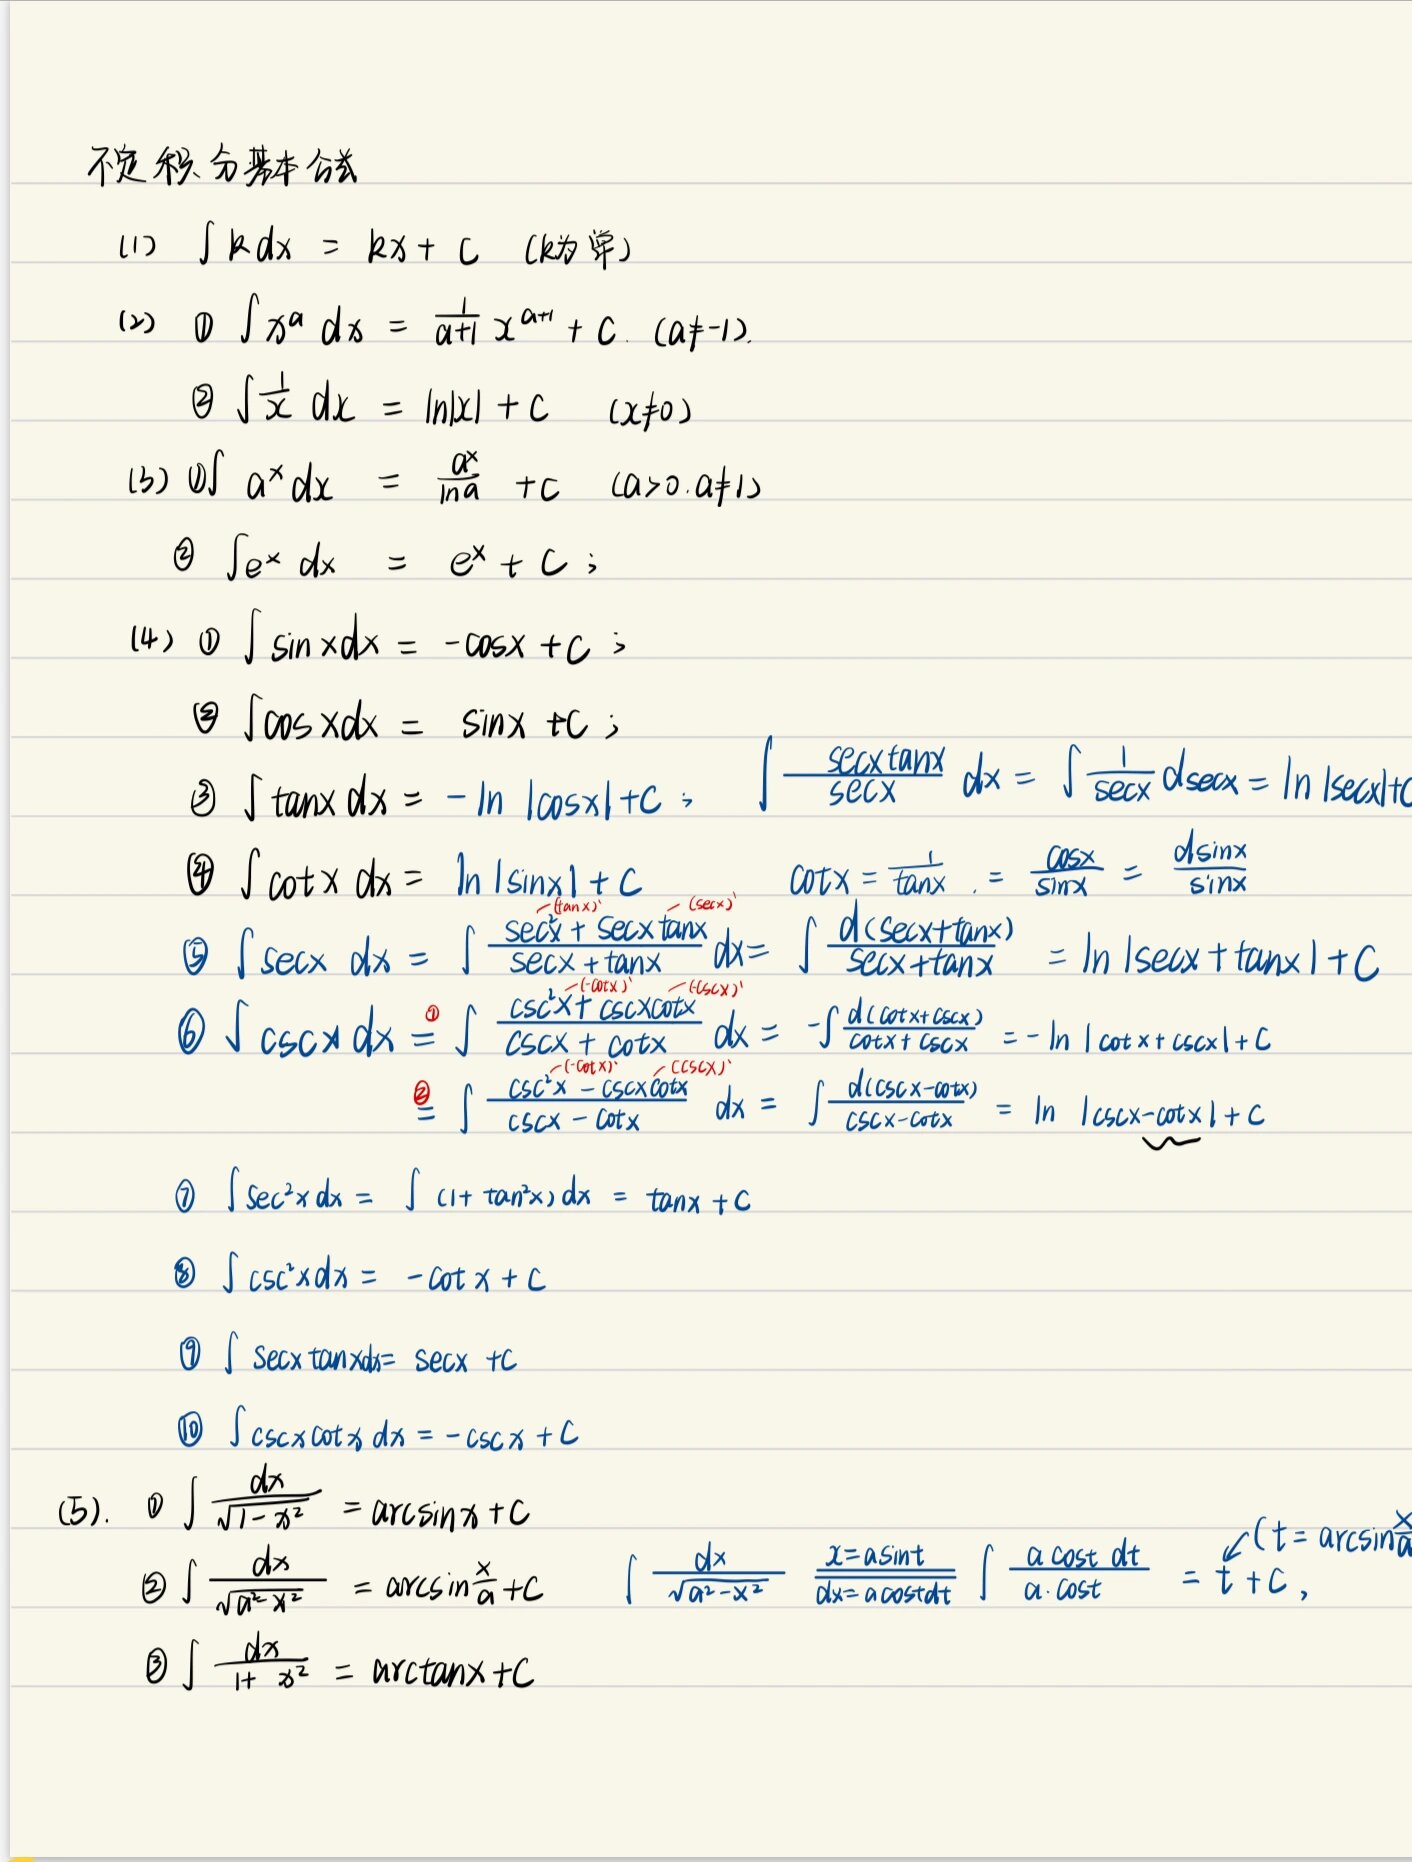 不定积分基本公式
(1) ∫ k dx = kx + C (k为常)
(2) ① ∫ x^a dx = 1/(a+1) x^(a+1) + C. (a≠-1).
② ∫ 1/x dx = ln|x| + C (x≠0)
(3) ① ∫ a^x dx = a^x/lna + C (a>0. a≠1)
② ∫ e^x dx = e^x + C ;
(4) ① ∫ sinxdx = -cosx + C ;
② ∫ cosxdx = sinx + C ;
③ ∫ tanxdx = -ln |cosx| + C ; ∫ secxtanx/secx dx = ∫ 1/secx dsecx = ln |secx|+C
④ ∫ cotx dx = ln |sinx| + C cotx = 1/tanx . = cosx/sinx = dsinx/sinx
(tanx)' (secx)'
⑤ ∫ secx dx = ∫ (sec²x + secxtanx)/(secx + tanx) dx = ∫ d(secx+tanx)/(secx+tanx) = ln |secx + tanx| + C
(-cotx)' (-cscx)'
⑥ ∫ cscx dx =① ∫ (csc²x + cscxcotx)/(cscx + cotx) dx = -∫ d(cotx+cscx)/(cotx+cscx) = -ln |cotx + cscx| + C
(-cotx)' (cscx)'
②= ∫ (csc²x - cscxcotx)/(cscx - cotx) dx = ∫ d(cscx-cotx)/(cscx-cotx) = ln |cscx-cotx| + C
⑦ ∫ sec²x dx = ∫ (1+ tan²x) dx = tanx + C
⑧ ∫ csc²x dx = -cotx + C
⑨ ∫ secxtanxdx = secx + C
⑩ ∫ cscxcotx dx = -cscx + C
(5). ① ∫ dx/√(1-x²) = arcsinx + C
② ∫ dx/√(a²-x²) = arcsin x/a + C ∫ dx/√(a²-x²) x=asint dx=acostdt ∫ a cost dt/(a·cost) = t + C, (t = arcsin x/a
③ ∫ dx/(1+x²) = arctanx + C